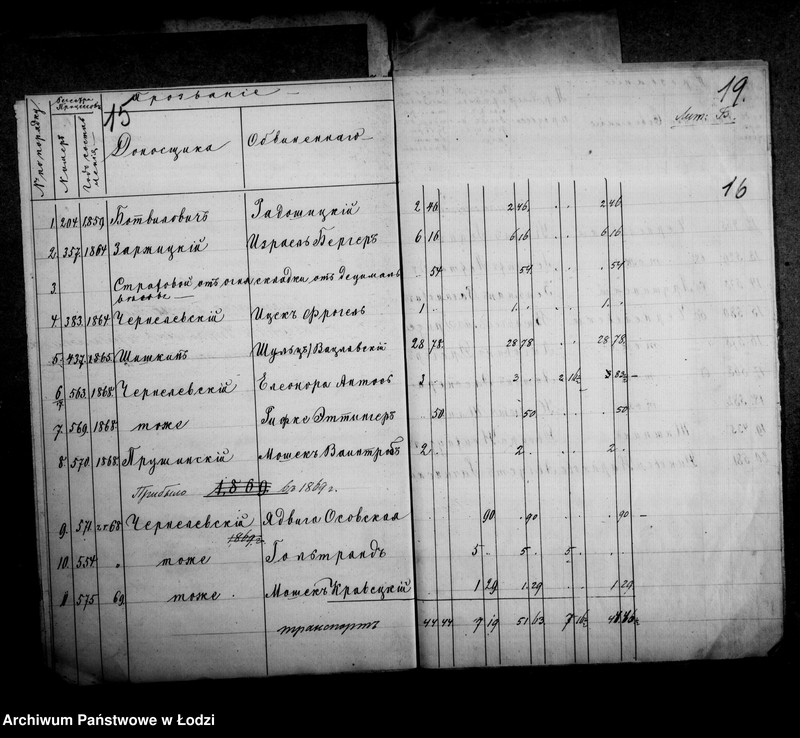 19.
Лит: Б.
15
Прозваніе
№ по порядку
Номеръ
Доносщика
Обвиненнаго
16
1 204 1859 Ботвиловичъ Радошицкій 2 46 2 46 . . 2 46
2. 357. 1864 Заржицкій Израель Бергеръ 6 16 6 16 . . 6 16
3. Страховой отъ огня складки отъ 54 54 . 54
4. 383. 1864 Чернелевскій Ицекъ Фрогель 1 1. 1.
5. 437. 1865. Шишкинъ Шульцъ / Вацлавскій 28 78. 28 78 28 78
6 563. 1868. Чернелевскій Елеонора 3 3 . 2 16½
7. 569. 1868. тоже Рифке Эттингеръ . 50 . 50 . 50
8. 570. 1868. Прушинскій Мошекъ Ваинтробъ 2 2. 2.
Прибыло 1869 въ 1869 г.
9. 571 68 Чернелевскій Ядвига Осовская 90 . 90 . 90
1869 г.
10. 554 " тоже Гольтрандъ 5 . 5 . 5 . .
11 575 69. тоже Мошекъ Кравецкій 1 29 1. 29 1. 29
транспортъ 44 44 7 19 51 63 7 16½
Archiwum Państwowe w Łodzi